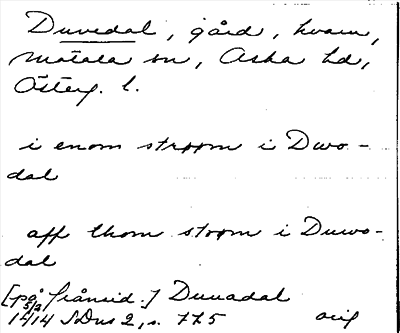 Duvedal, gård, kvarn,
Motala sn, Aska hd,
Österg. l.
i enom strøøm i Dwo-
dal
aff thom strøm i Duwo-
dal
[på frånsid.] Duuadal
1414 5/2 SDns 2, s. 775 orig